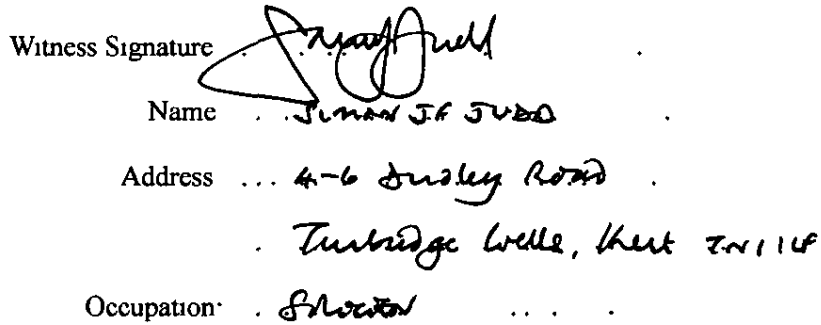 Witness Signature
Name SIMON JF JUDD
Address 4-6 Dudley Road
Tunbridge Wells, Kent TN1 1LF
Occupation Solicitor